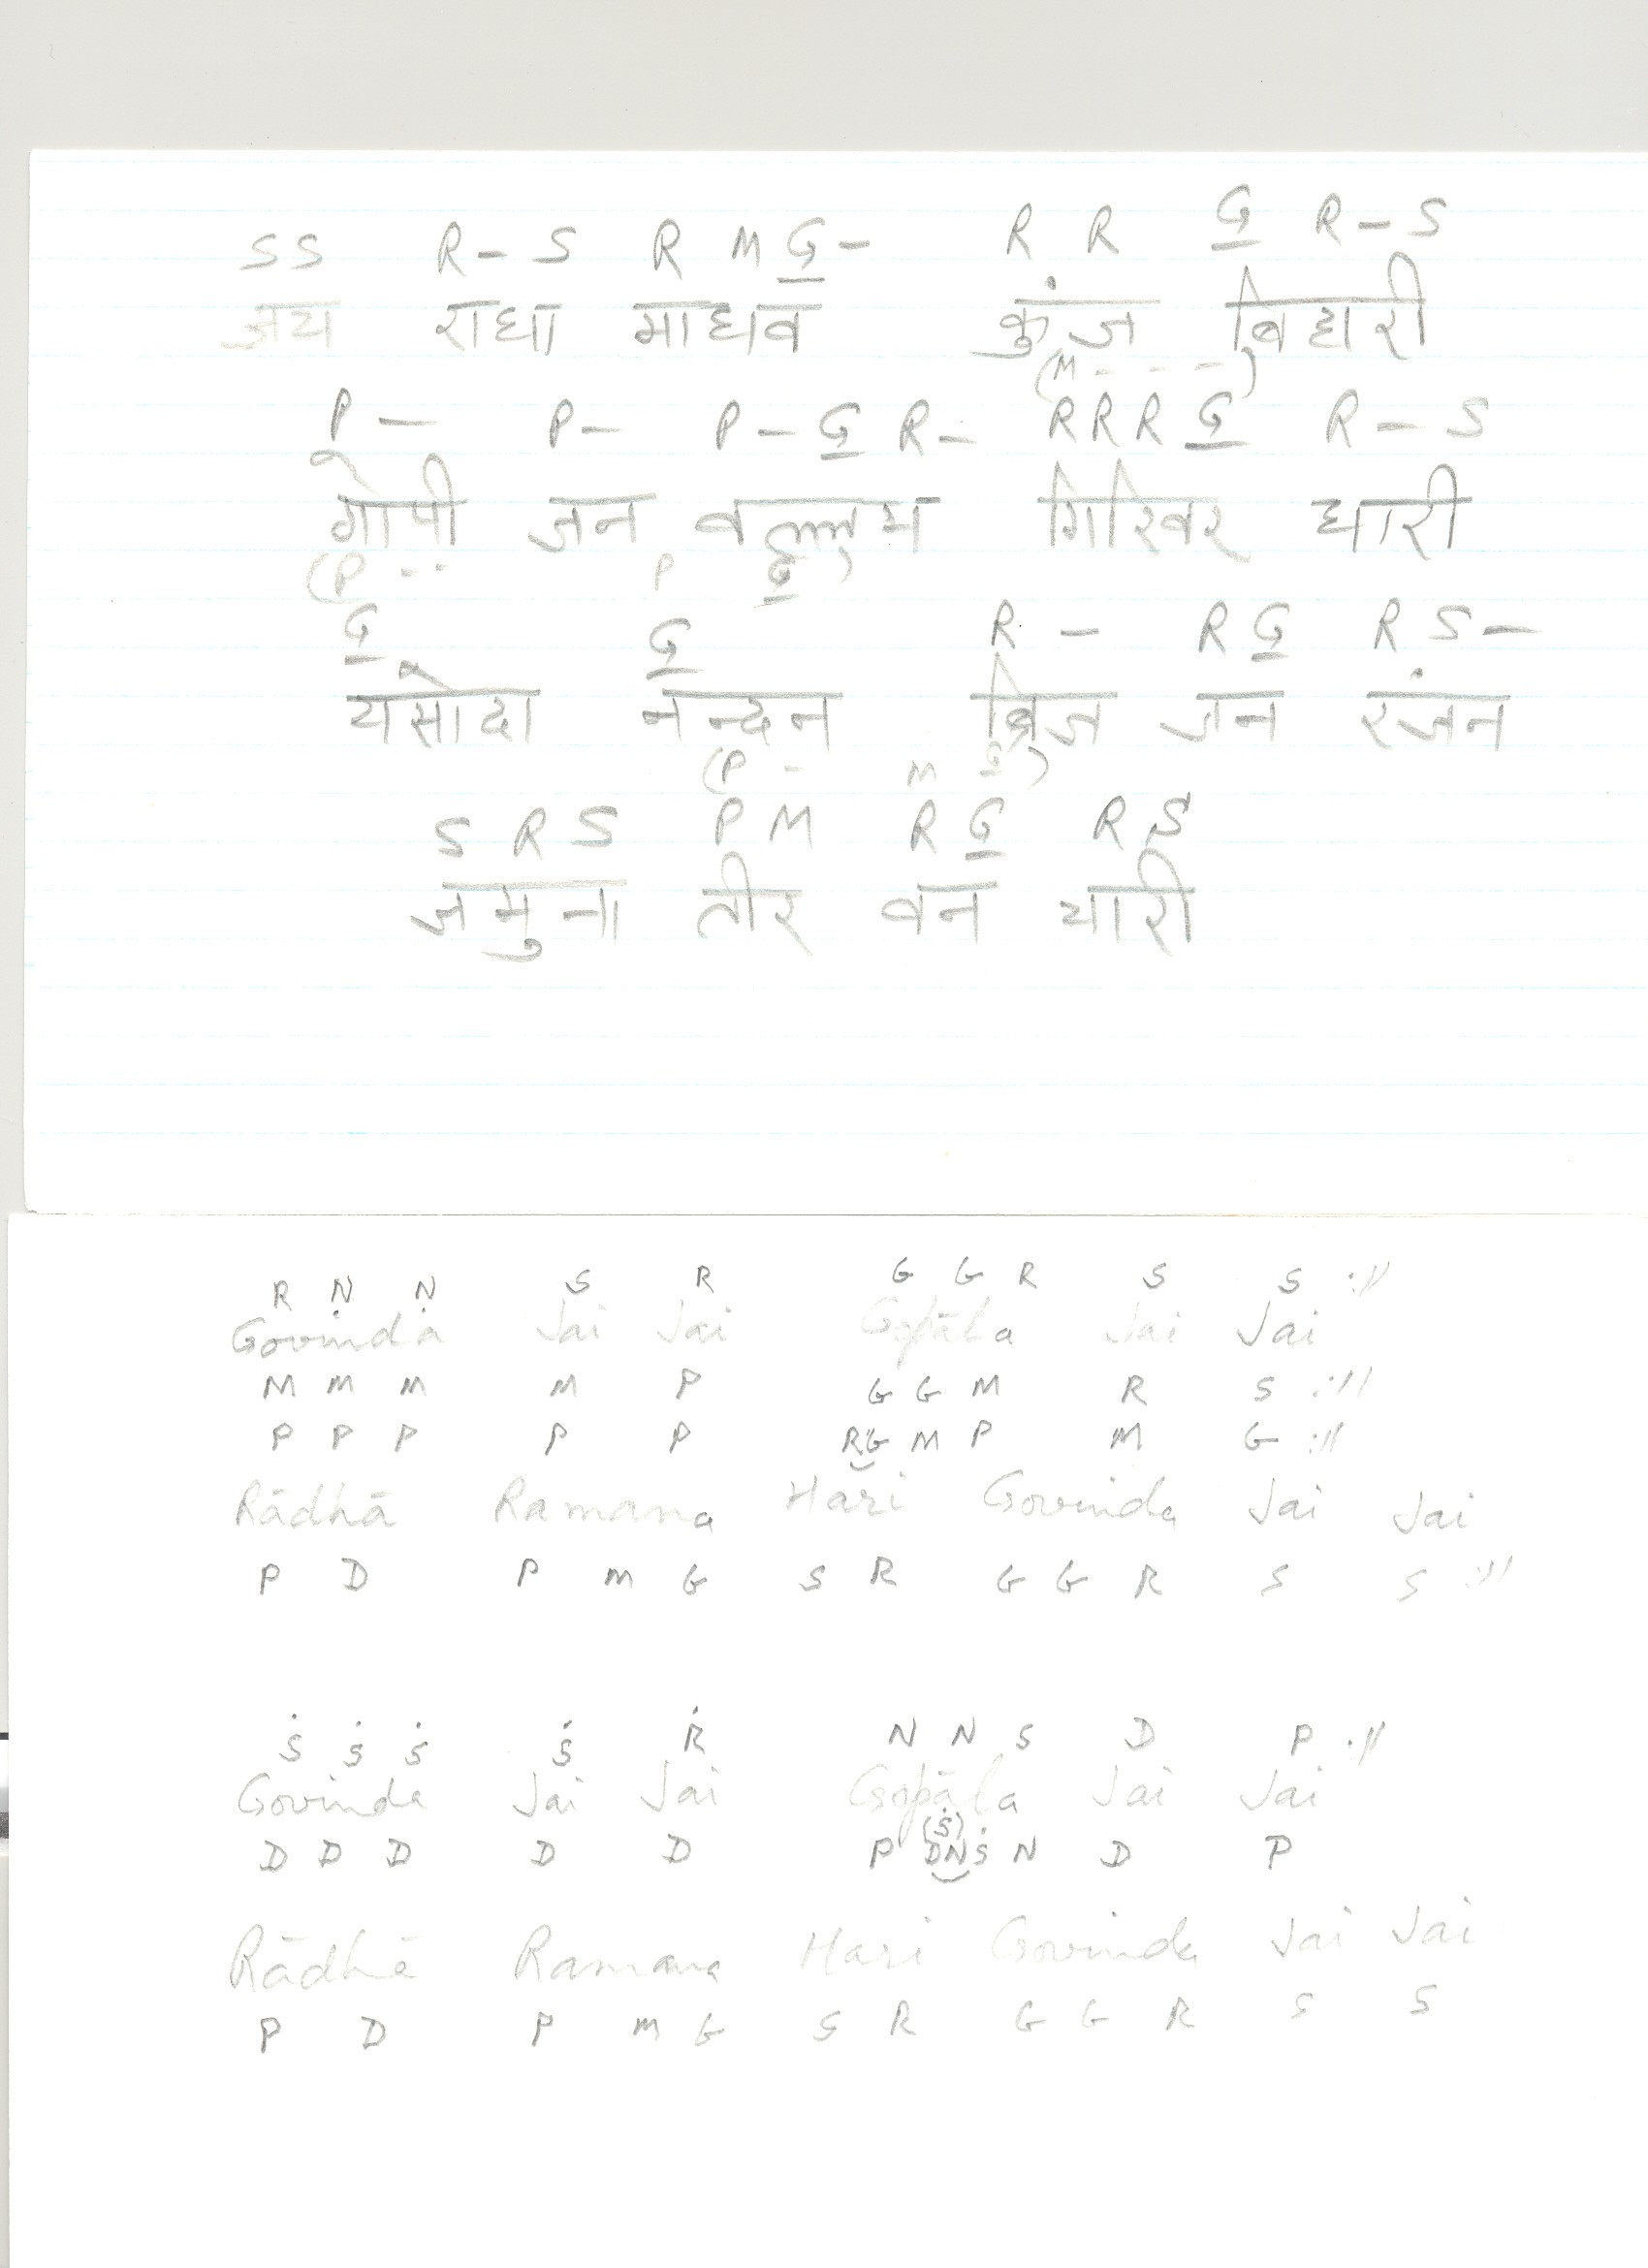 S S R - S R M G - R R G R - S
जय राधा माधव कुंज बिहारी
(M - - - -)
P - P - P - G R - R R R G R - S
गोपी जन वल्लभ गिरिवर धारी
(P - - P G)
G G R - R G R S -
यसोदा नन्दन ब्रिज जन रंजन
(P - M G)
S R S P M R G R S
जमुना तीर वन चारी
R Ṇ Ṇ S R G G R S S ://
Govinda Jai Jai Gopāla Jai Jai
M M M M P G G M R S ://
P P P P P RG M P M G ://
Rādhā Ramana Hari Govinda Jai Jai
P D P M G S R G G R S S ://
Ṡ Ṡ Ṡ Ṡ Ṙ N N S D P ://
Govinda Jai Jai Gopāla Jai Jai
(Ṡ)
D D D D D P DN Ṡ N D P
Rādhā Ramana Hari Govinda Jai Jai
P D P M G S R G G R S S